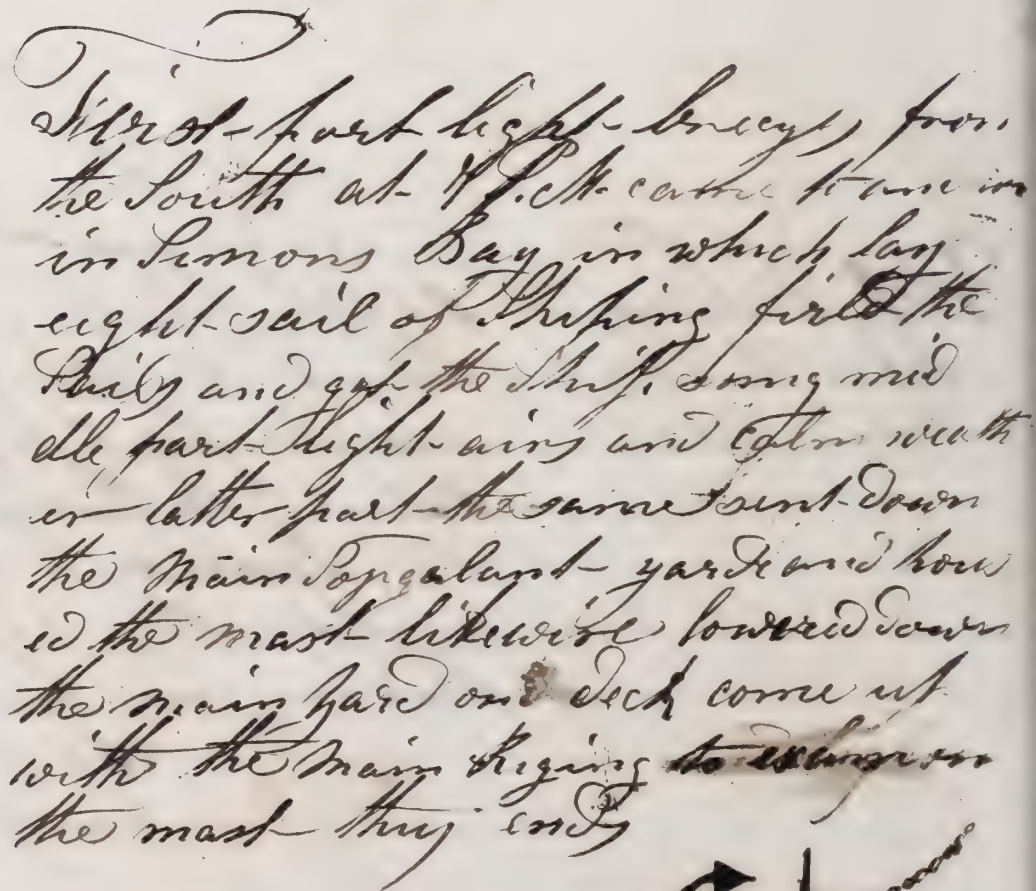 First part light breezes from
the South at 4 P.M. came to anc in
in Simons Bay in which lay
eight sail of Shiping firld the
Sails and got the Ship. snug mid
dle part light airs and Calm weath
er latter part the same sent down
the Main Topgalant yard and hous
ed the mast likewise lowerd down
the main yard on deck come up
with the Main Riging to
the mast thus ends